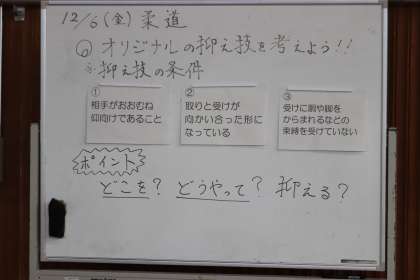 12/6(金) 柔道
◎ オリジナルの抑え技を考えよう!!
※抑え技の条件
①
相手がおおむね
仰向けであること
②
取りと受けが
向かい合った形に
なっている
③
受けに胴や脚を
からまれるなどの
束縛を受けていない
ポイント
どこを? どうやって? 抑える?